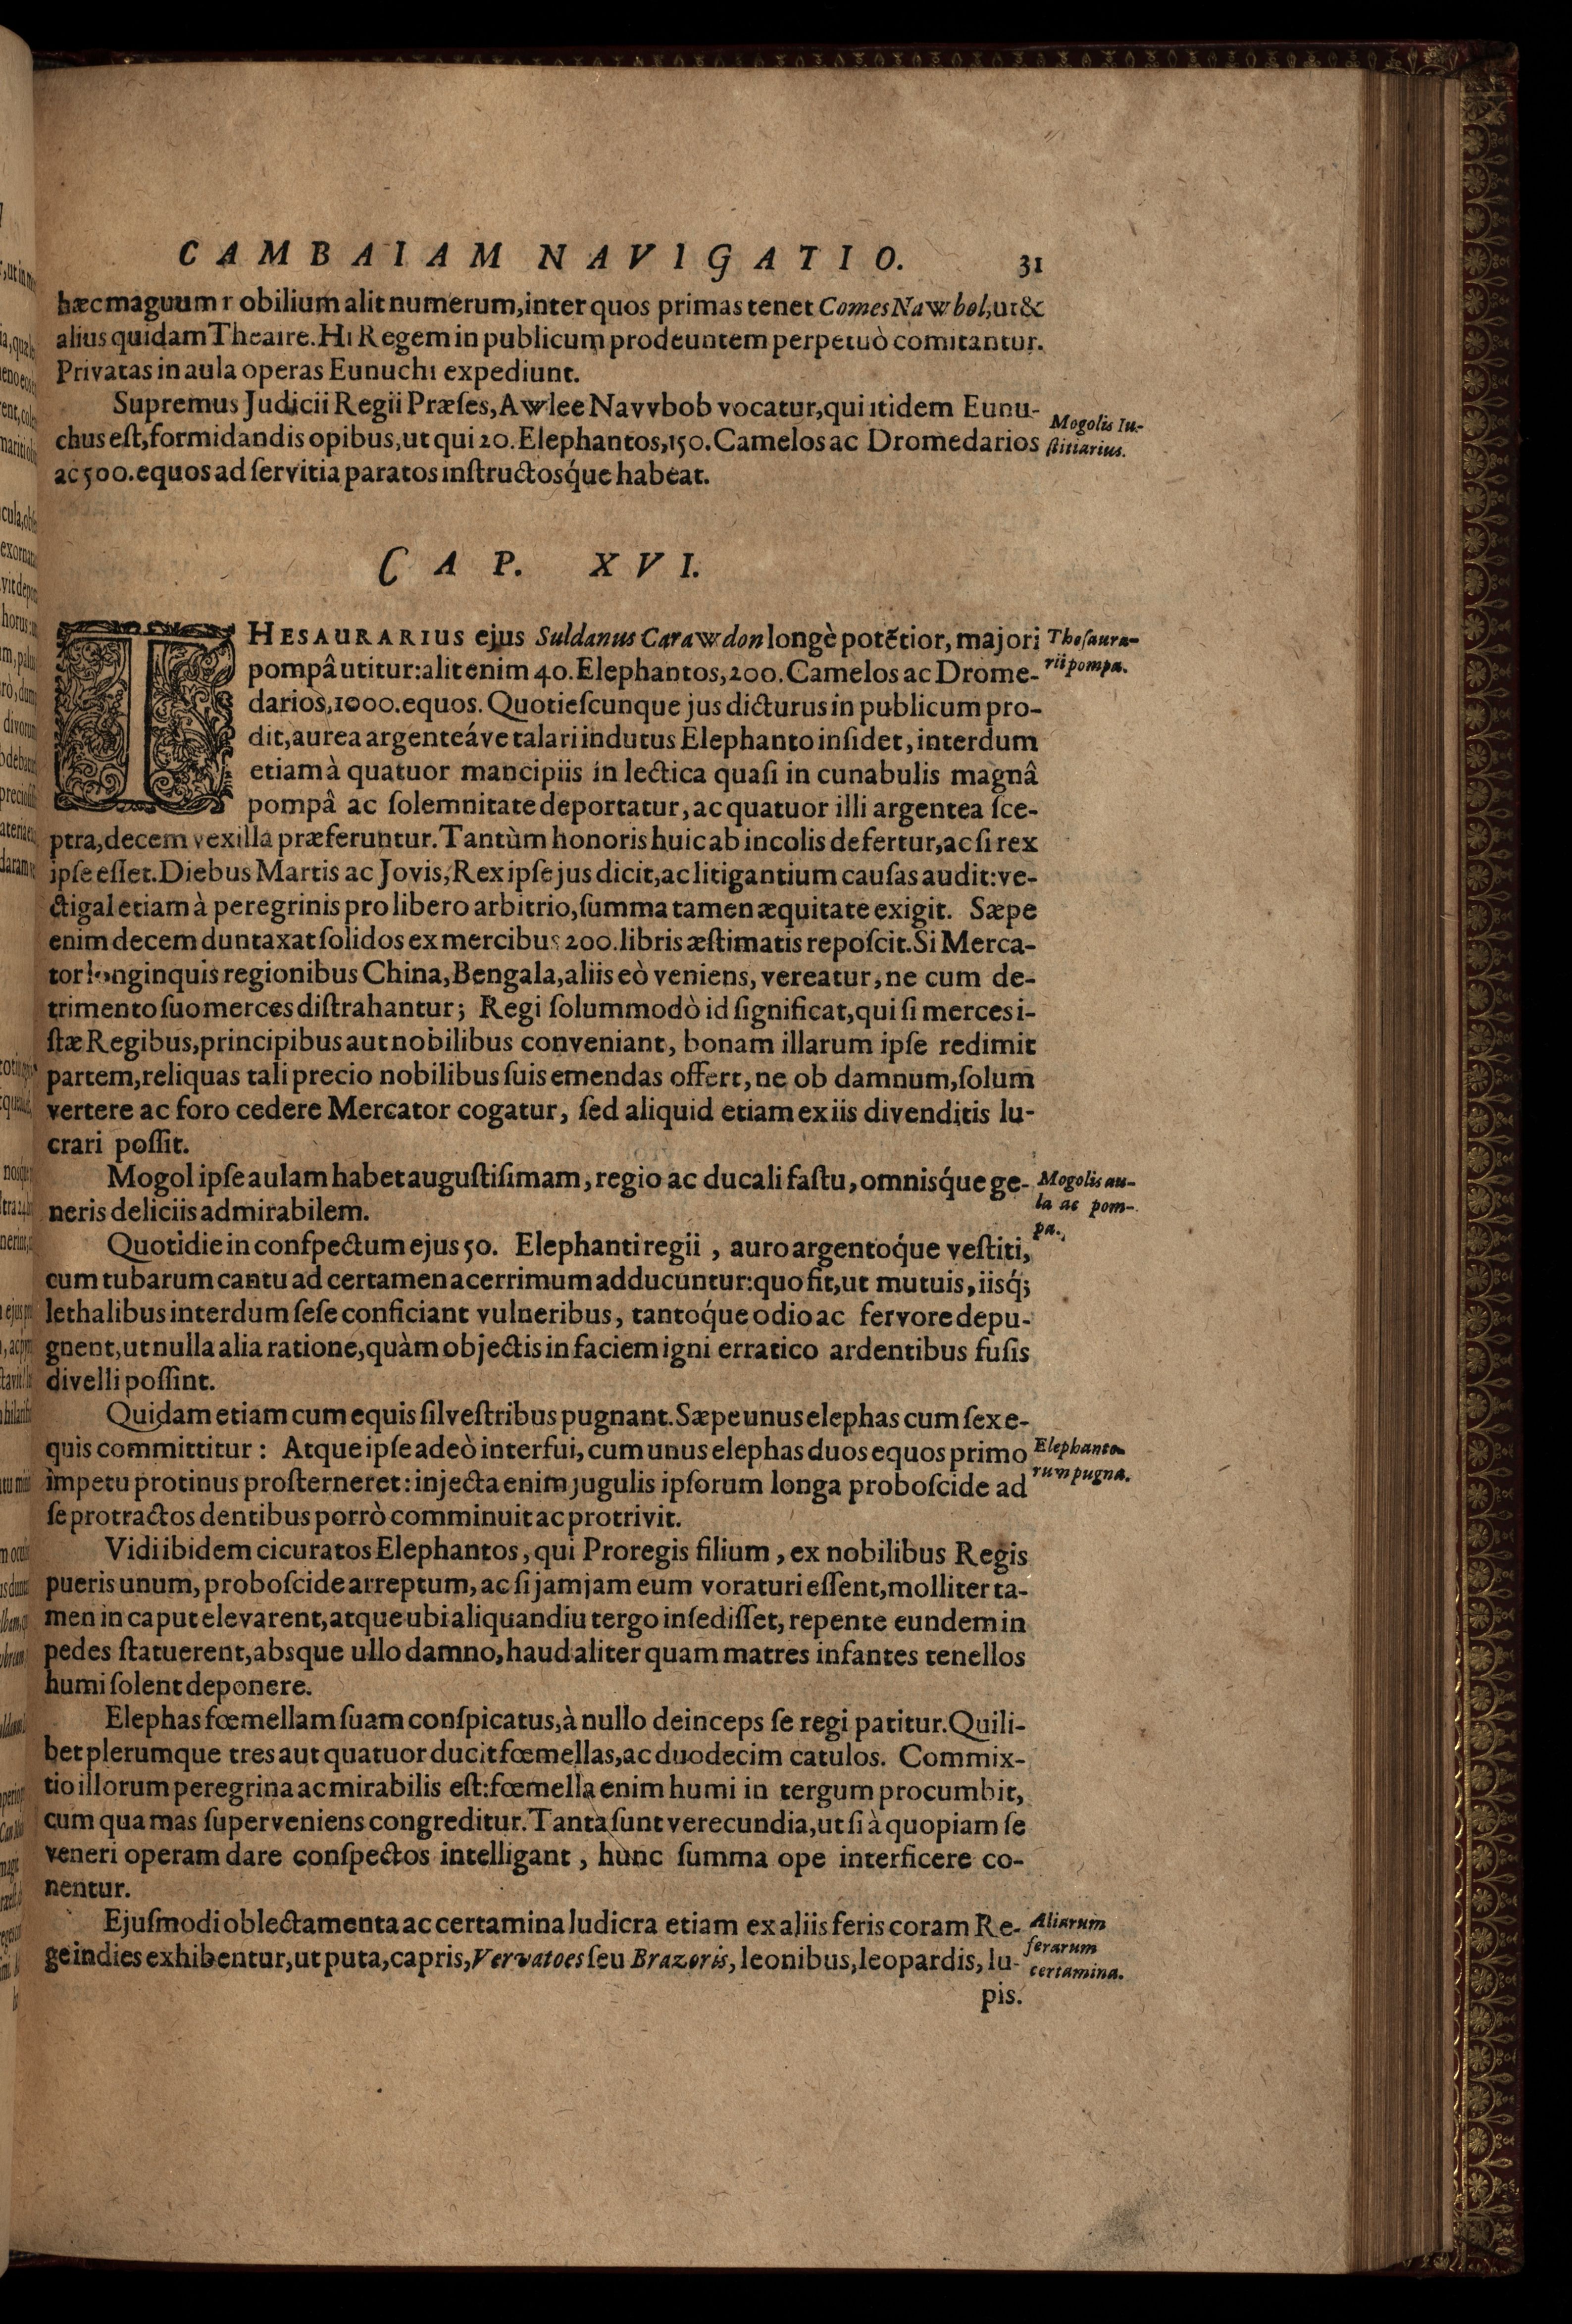 CAMBAIAM NAVIGATIO. 31
hæc maguum r obilium alit numerum, inter quos primas tenet Comes Nawbol, ut &
alius quidam Theaire. Hi Regem in publicum prodeuntem perpetuò comitantur.
Privatas in aula operas Eunuchi expediunt.
Supremus Judicii Regii Præſes, Awlee Navvbob vocatur, qui itidem Eunu-
chus eſt, formidandis opibus, ut qui 20. Elephantos, 150. Camelos ac Dromedarios
ac 500. equos ad ſervitia paratos inſtructosq́ue habeat.
Mogolis Iu-
ſtitiarius.
CAP. XVI.
THESAURARIUS ejus Suldanus Carawdon longè potẽtior, majori
pompâ utitur: alit enim 40. Elephantos, 200. Camelos ac Drome-
darios, 1000. equos. Quotieſcunque jus dicturus in publicum pro-
dit, aurea argenteáve talari indutus Elephanto inſidet, interdum
etiam à quatuor mancipiis in lectica quaſi in cunabulis magnâ
pompâ ac ſolemnitate deportatur, ac quatuor illi argentea ſce-
ptra, decem vexilla præferuntur. Tantùm honoris huic ab incolis defertur, ac ſi rex
ipſe eſſet. Diebus Martis ac Jovis, Rex ipſe jus dicit, ac litigantium cauſas audit: ve-
ctigal etiam à peregrinis pro libero arbitrio, ſumma tamen æquitate exigit. Sæpe
enim decem duntaxat ſolidos ex mercibus 200. libris æſtimatis repoſcit. Si Merca-
tor longinquis regionibus China, Bengala, aliis eò veniens, vereatur, ne cum de-
trimento ſuo merces diſtrahantur; Regi ſolummodò id ſignificat, qui ſi merces i-
ſtæ Regibus, principibus aut nobilibus conveniant, bonam illarum ipſe redimit
partem, reliquas tali precio nobilibus ſuis emendas offert, ne ob damnum, ſolum
vertere ac foro cedere Mercator cogatur, ſed aliquid etiam ex iis divenditis lu-
crari poſſit.
Theſaura-
rii pompa.
Mogol ipſe aulam habet auguſtiſimam, regio ac ducali faſtu, omnisq́ue ge-
neris deliciis admirabilem.
Mogolis au-
la ac pom-
pa.
Quotidie in conſpectum ejus 50. Elephanti regii, auro argentoq́ue veſtiti,
cum tubarum cantu ad certamen acerrimum adducuntur: quo fit, ut mutuis, iisq́;
lethalibus interdum ſeſe conficiant vulneribus, tantoq́ue odio ac fervore depu-
gnent, ut nulla alia ratione, quàm objectis in faciem igni erratico ardentibus fuſis
divelli poſſint.
Quidam etiam cum equis ſilveſtribus pugnant. Sæpe unus elephas cum ſex e-
quis committitur: Atque ipſe adeò interfui, cum unus elephas duos equos primo
impetu protinus proſterneret: injecta enim jugulis ipſorum longa proboſcide ad
ſe protractos dentibus porrò comminuit ac protrivit.
Elephanto-
rum pugna.
Vidi ibidem cicuratos Elephantos, qui Proregis filium, ex nobilibus Regis
pueris unum, proboſcide arreptum, ac ſi jamjam eum voraturi eſſent, molliter ta-
men in caput elevarent, atque ubi aliquandiu tergo inſediſſet, repente eundem in
pedes ſtatuerent, absque ullo damno, haud aliter quam matres infantes tenellos
humi ſolent deponere.
Elephas fœmellam ſuam conſpicatus, à nullo deinceps ſe regi patitur. Quili-
bet plerumque tres aut quatuor ducit fœmellas, ac duodecim catulos. Commix-
tio illorum peregrina ac mirabilis eſt: fœmella enim humi in tergum procumbit,
cum qua mas ſuperveniens congreditur. Tanta ſunt verecundia, ut ſi à quopiam ſe
veneri operam dare conſpectos intelligant, hunc ſumma ope interficere co-
nentur.
Ejuſmodi oblectamenta ac certamina ludicra etiam ex aliis feris coram Re-
ge indies exhibentur, ut puta, capris, Vervatoes ſeu Brazoris, leonibus, leopardis, lu-
Aliarum
ferarum
certamina.
pis.